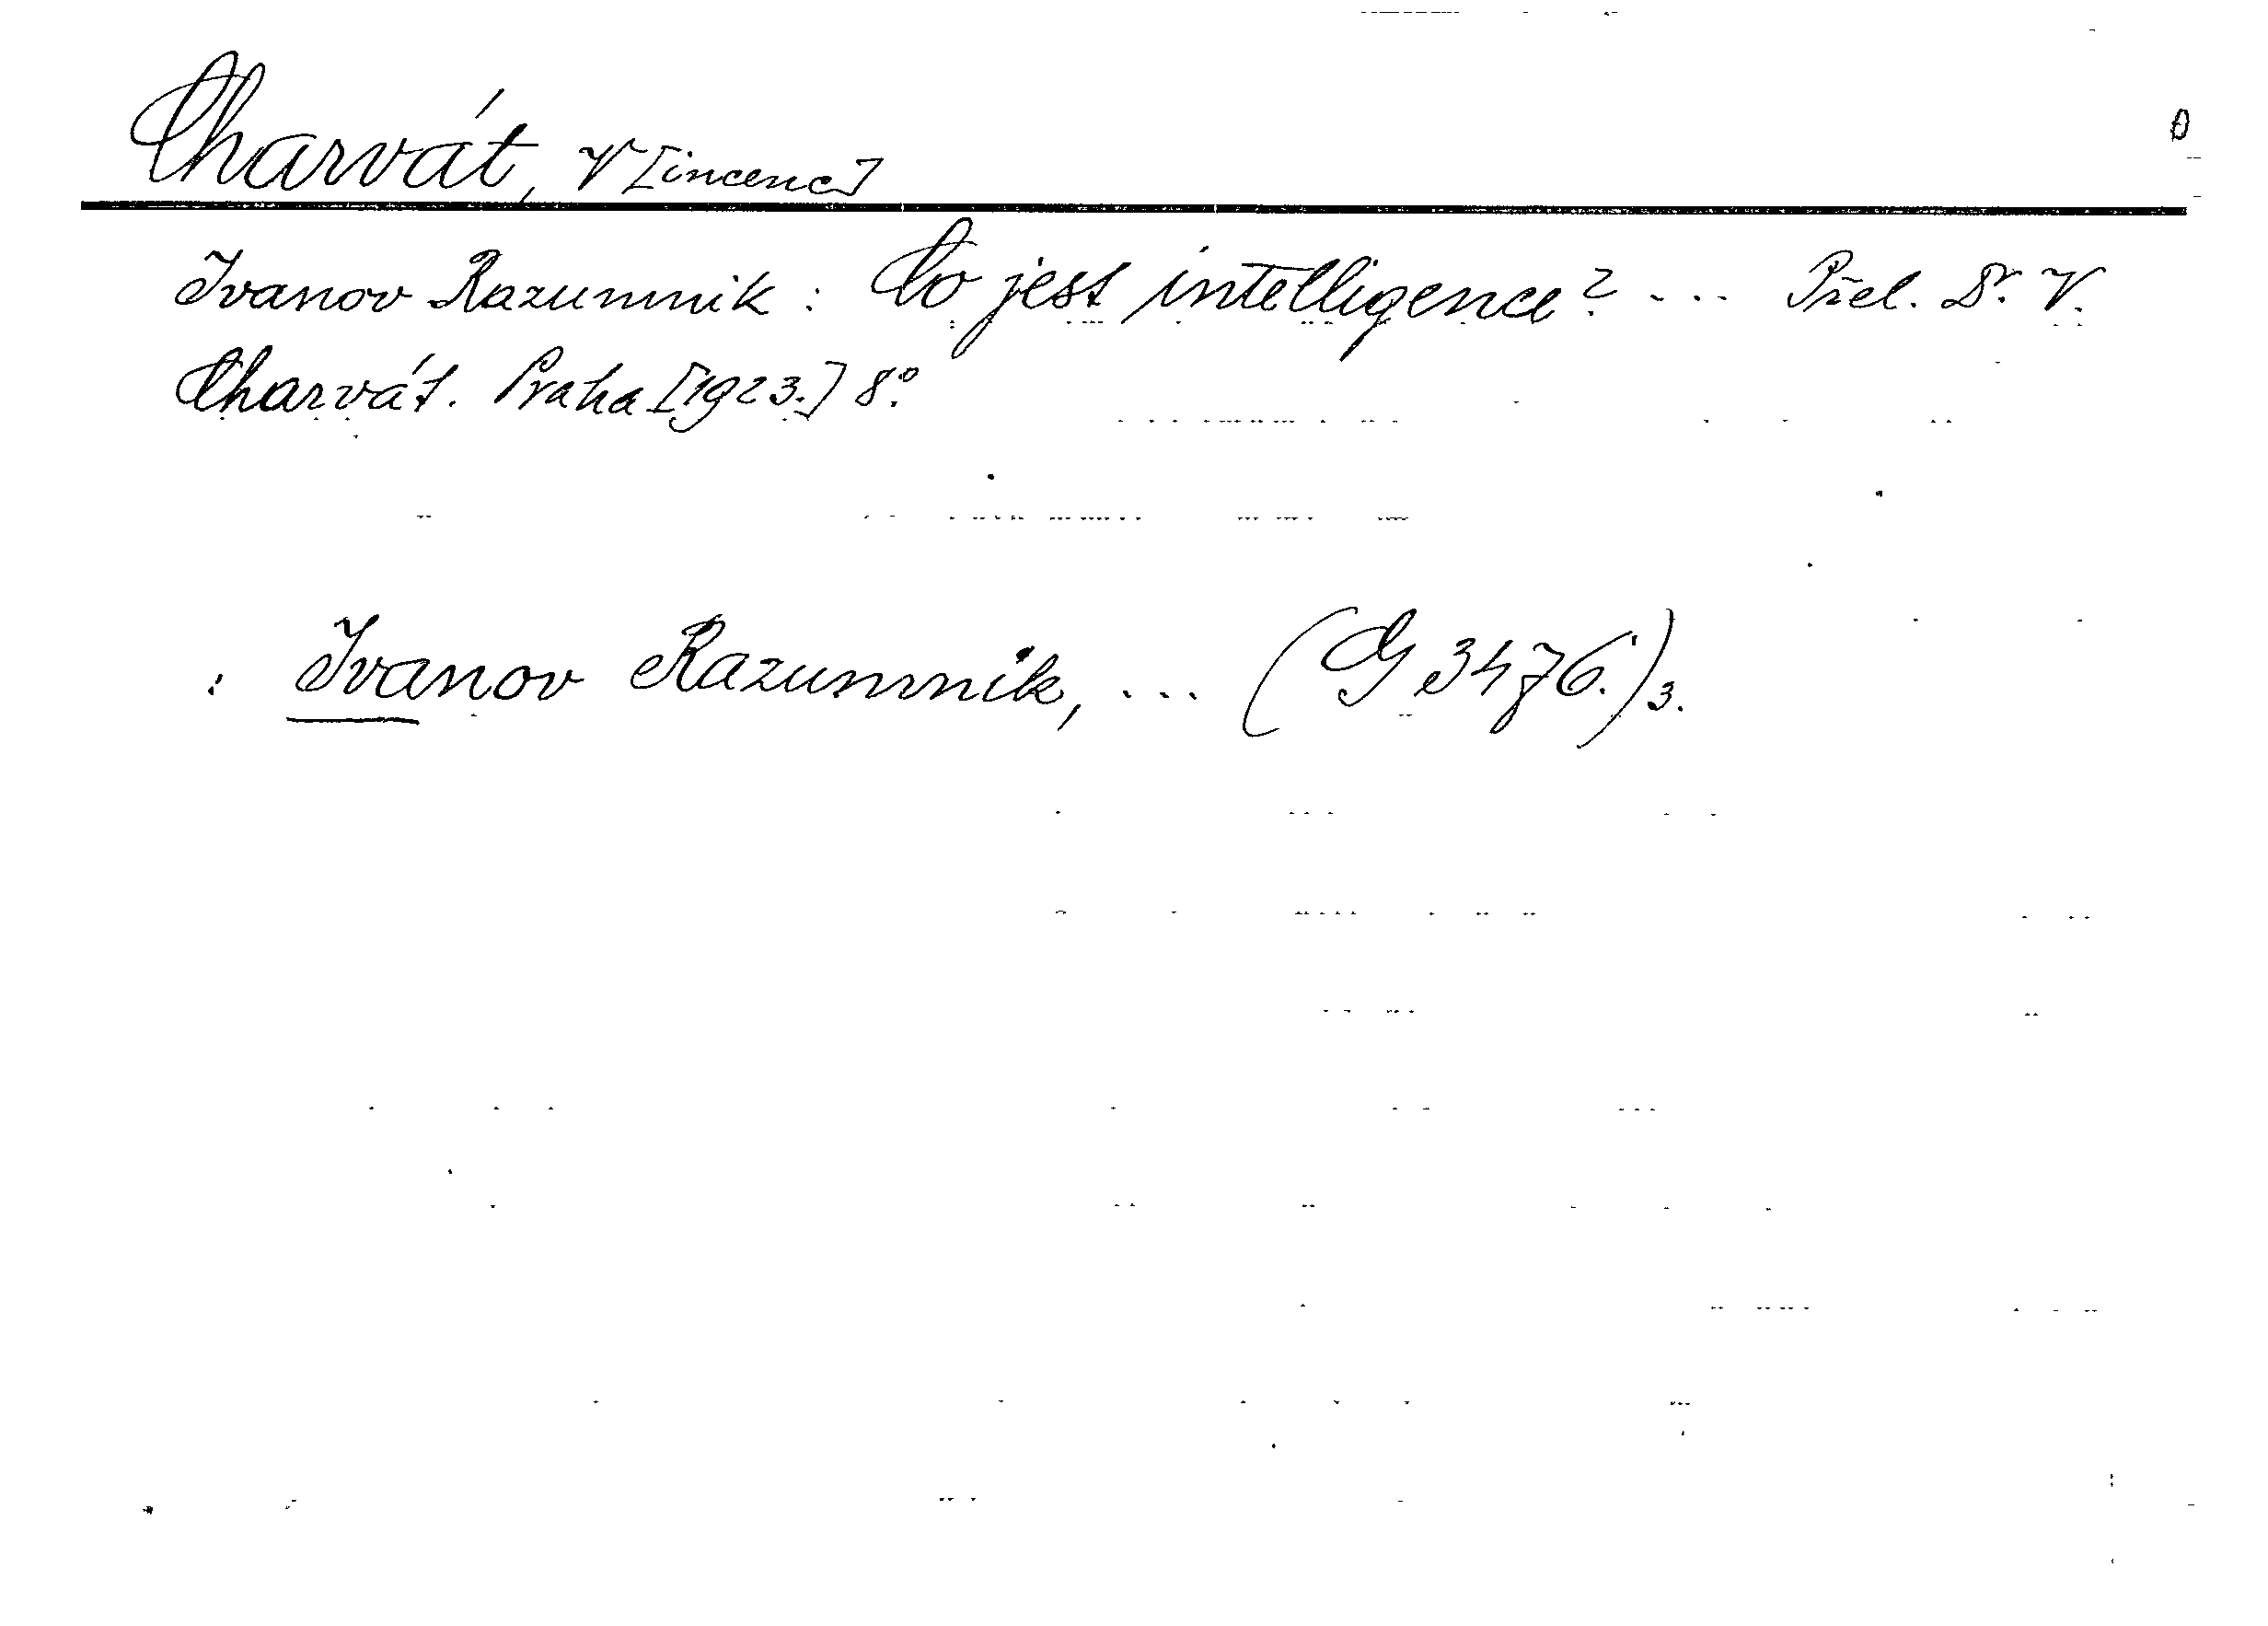 Charvát, V[incenc]
Ivanov Razumnik: Co jest intelligence? ... Přel. Dr. V.
Charvát. Praha [1923.] 8°.
: Ivanov Razumnik, ... (G 3476.)3.